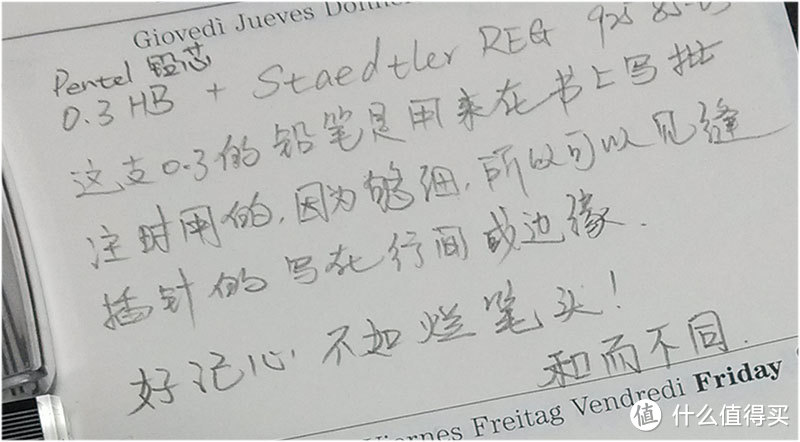 Giovedì Jueves Donner
Pentel 铅芯
0.3 HB + Staedtler REG 925 85-03
这支0.3的铅笔是用来在书上写批
注时用的,因为够细,所以可以见缝
插针的写在行间或边缘.
好记心不如烂笔头!
和而不同.
Viernes Freitag Vendredi Friday
值 什么值得买